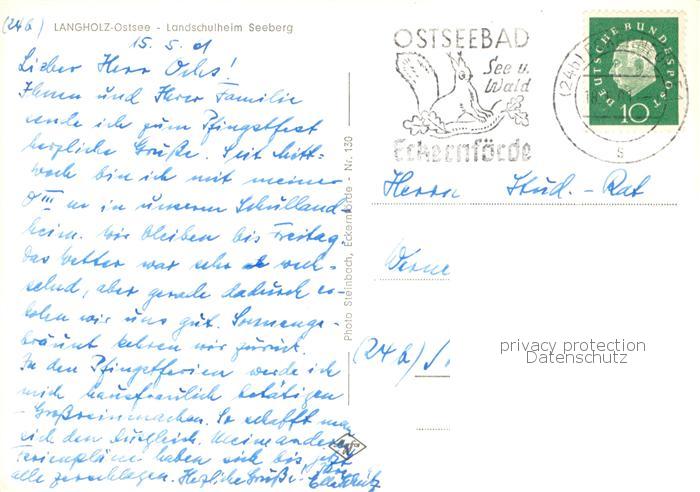 (24b) LANGHOLZ-Ostsee - Landschulheim Seeberg
15. 5. 61
Lieber Herr Ochs!
Ihnen und Ihrer Familie
sende ich zum Pfingstfest
herzliche Grüße. Seit Mitt-
woch bin ich mit meiner
O III in unserem Schulland-
heim. Wir bleiben bis Freitag
Das Wetter war sehr wech-
selnd, aber gerade dadurch er-
holen wir uns gut. Sonnenge-
bräunt kehren wir zurück.
In den Pfingstferien werde ich
mich hausfraulich betätigen
- Großreinmachen. So schafft man
sich den Ausgleich. Meine anderen
Ferienpläne haben sich bis jetzt
alle zerschlagen. Herzliche Grüße! Ihre
Photo Steinbach, Eckernförde - Nr. 130
OSTSEEBAD
See u.
Wald
Eckernförde
(24b)
s
DEUTSCHE BUNDESPOST
10
Herrn Stud.-Rat
Werne
(24b)
privacy protection
Datenschutz